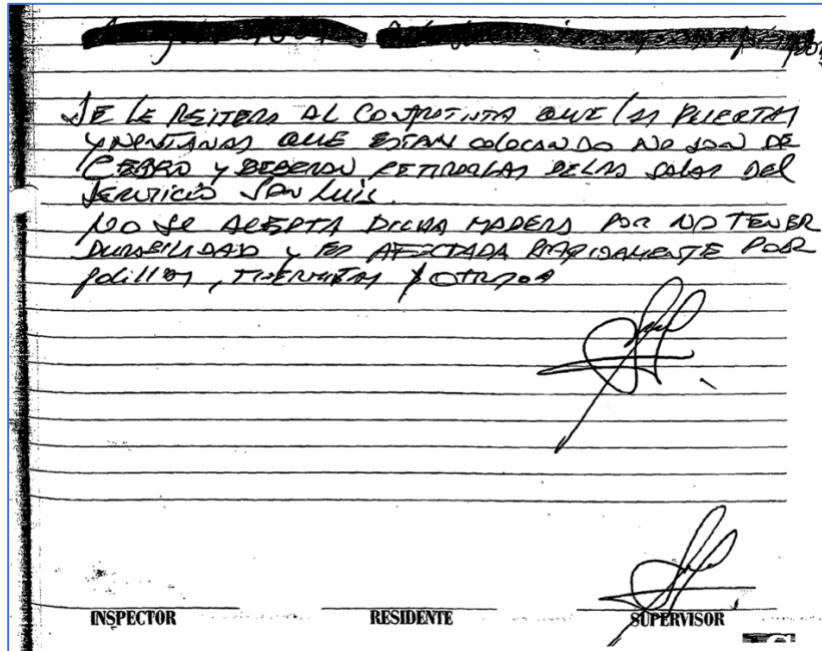 SE LE REITERA AL CONTRATISTA QUE LAS PUERTAS
Y VENTANAS QUE ESTAN COLOCANDO NO SON DE
CEDRO Y DEBERAN RETIRARLAS DE LAS SALAS DEL
SERVICIO SAN LUIS.
NO SE ACEPTA DICHA MADERA POR NO TENER
DURABILIDAD Y ES AFECTADA RAPIDAMENTE POR
POLILLAS, TIERMITAS Y OTROS
INSPECTOR RESIDENTE SUPERVISOR